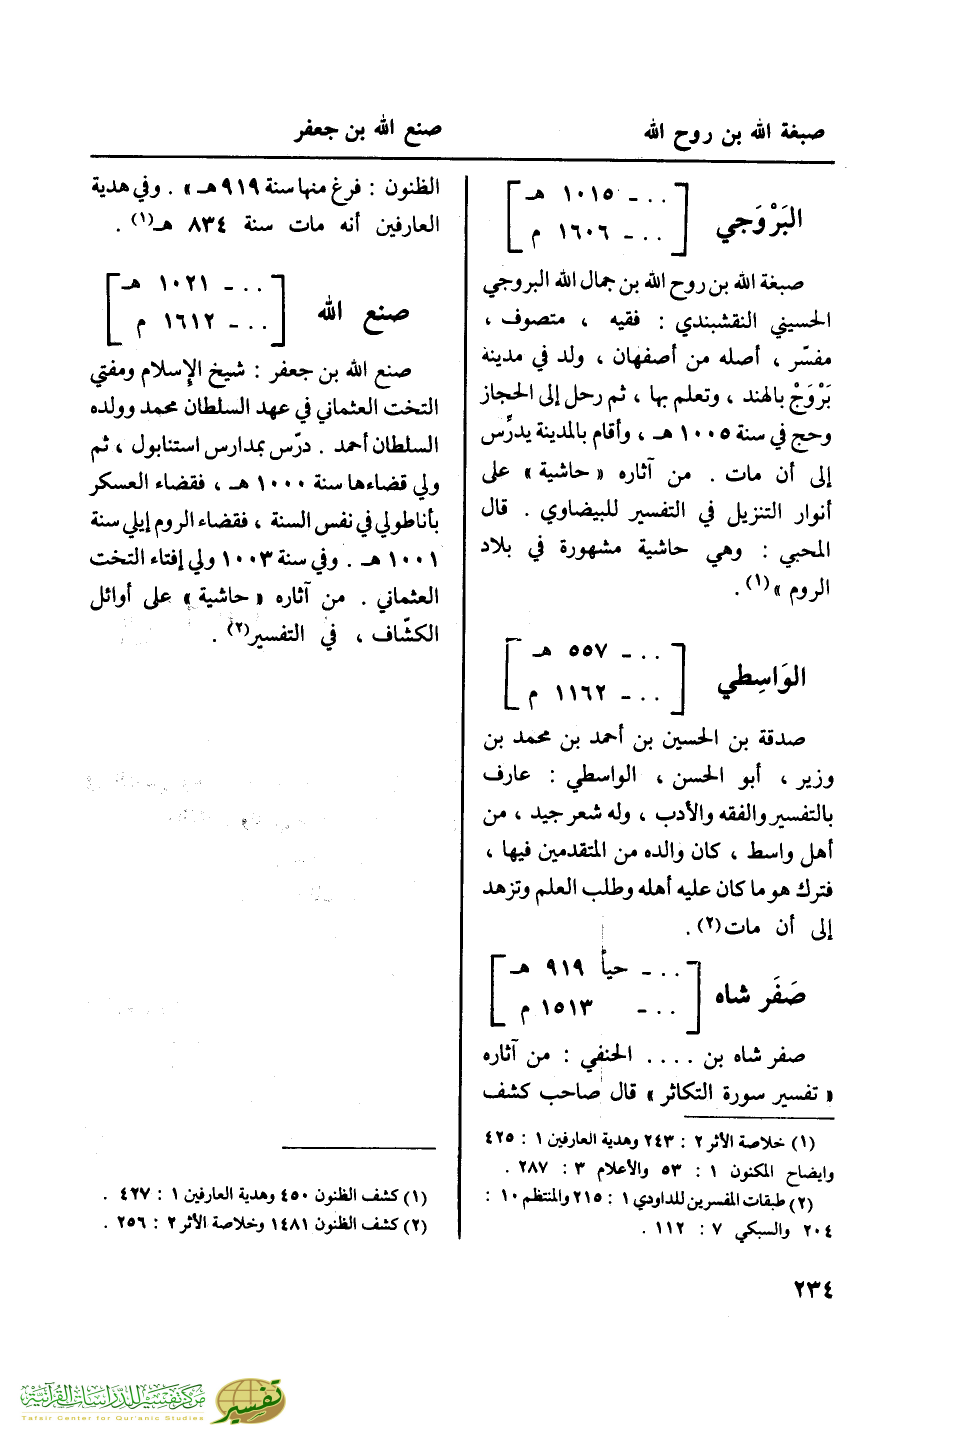 صبغة الله بن روح الله
صنع الله بن جعفر
البَرْوَجي
[ . . ـ ١٠١٥ هـ ]
[ . . ـ ١٦٠٦ م ]
صبغة الله بن روح الله بن جمال الله البروجي
الحسيني النقشبندي : فقيه ، متصوف ،
مفسّر ، أصله من أصفهان ، ولد في مدينة
بَرْوَجْ بالهند ، وتعلم بها ، ثم رحل إلى الحجاز
وحج في سنة ١٠٠٥ هـ ، وأقام بالمدينة يدرِّس
إلى أن مات . من آثاره « حاشية » على
أنوار التنزيل في التفسير للبيضاوي . قال
المحبي : وهي حاشية مشهورة في بلاد
الروم »(١) .
الوَاسِطي
[ . . ـ ٥٥٧ هـ ]
[ . . ـ ١١٦٢ م ]
صدقة بن الحسين بن أحمد بن محمد بن
وزير ، أبو الحسن ، الواسطي : عارف
بالتفسير والفقه والأدب ، وله شعر جيد ، من
أهل واسط ، كان والده من المتقدمين فيها ،
فترك هو ما كان عليه أهله وطلب العلم وتزهد
إلى أن مات(٢) .
صَفَر شاه
[ . . ـ حياً ٩١٩ هـ ]
[ . . ـ ١٥١٣ م ]
صفر شاه بن . . . . الحنفي : من آثاره
« تفسير سورة التكاثر » قال صاحب كشف
(١) خلاصة الأثر ٢ : ٢٤٣ وهدية العارفين ١ : ٤٢٥
وايضاح المكنون ١ : ٥٣ والأعلام ٣ : ٢٨٧ .
(٢) طبقات المفسرين للداودي ١ : ٢١٥ والمنتظم ١٠ :
٢٠٤ والسبكي ٧ : ١١٢ .
الظنون : فرغ منها سنة ٩١٩ هـ » . وفي هدية
العارفين أنه مات سنة ٨٣٤ هـ(١) .
صنع الله
[ . . ـ ١٠٢١ هـ ]
[ . . ـ ١٦١٢ م ]
صنع الله بن جعفر : شيخ الإسلام ومفتي
التخت العثماني في عهد السلطان محمد وولده
السلطان أحمد . درّس بمدارس استنابول ، ثم
ولي قضاءها سنة ١٠٠٠ هـ ، فقضاء العسكر
بأناطولي في نفس السنة ، فقضاء الروم إيلي سنة
١٠٠١ هـ . وفي سنة ١٠٠٣ ولي إفتاء التخت
العثماني . من آثاره « حاشية » على أوائل
الكشّاف ، في التفسير(٢) .
(١) كشف الظنون ٤٥٠ وهدية العارفين ١ : ٤٢٧ .
(٢) كشف الظنون ١٤٨١ وخلاصة الأثر ٢ : ٢٥٦ .
٢٣٤
مركز تفسير للدراسات القرآنية
Tafsir Center for Qur'anic Studies
تفسير